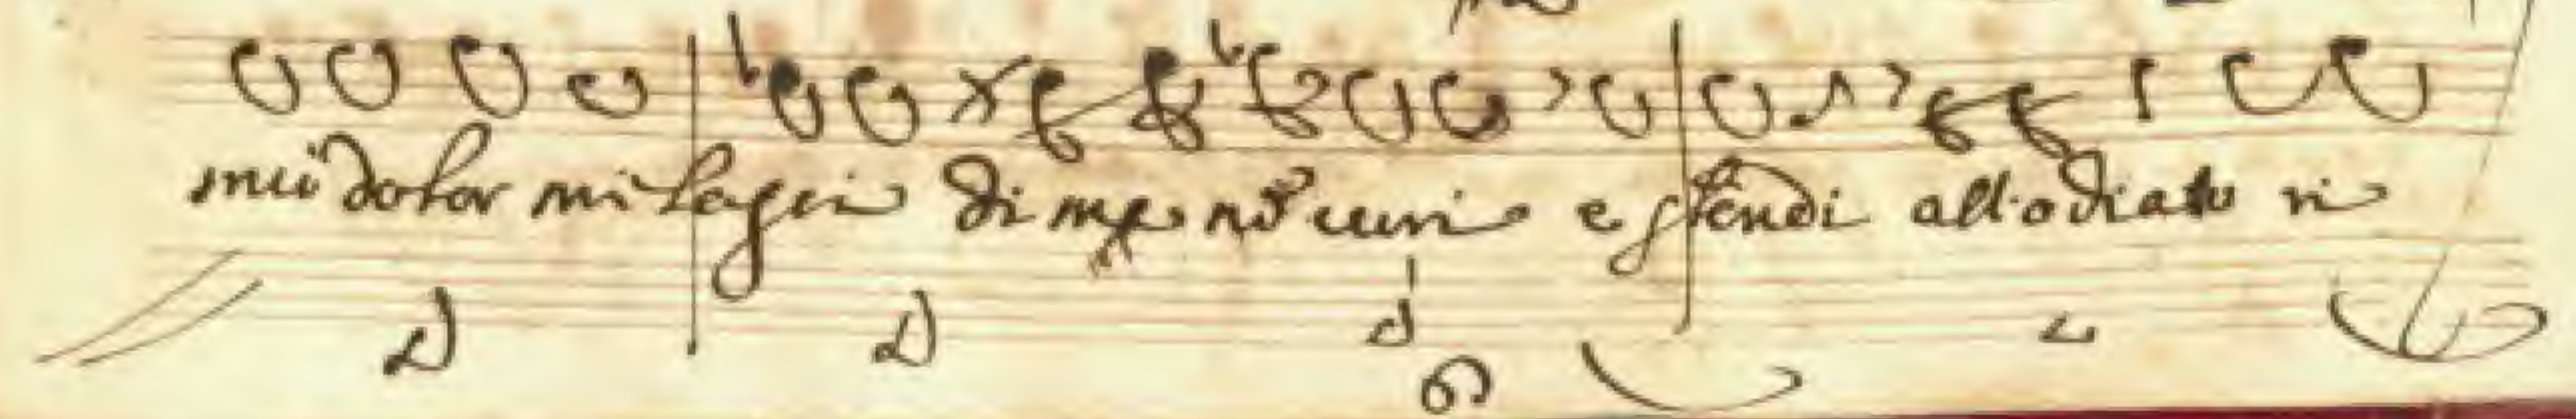 miei dolor mi lagni di me nõ curi e stendi all'odiato ri
6